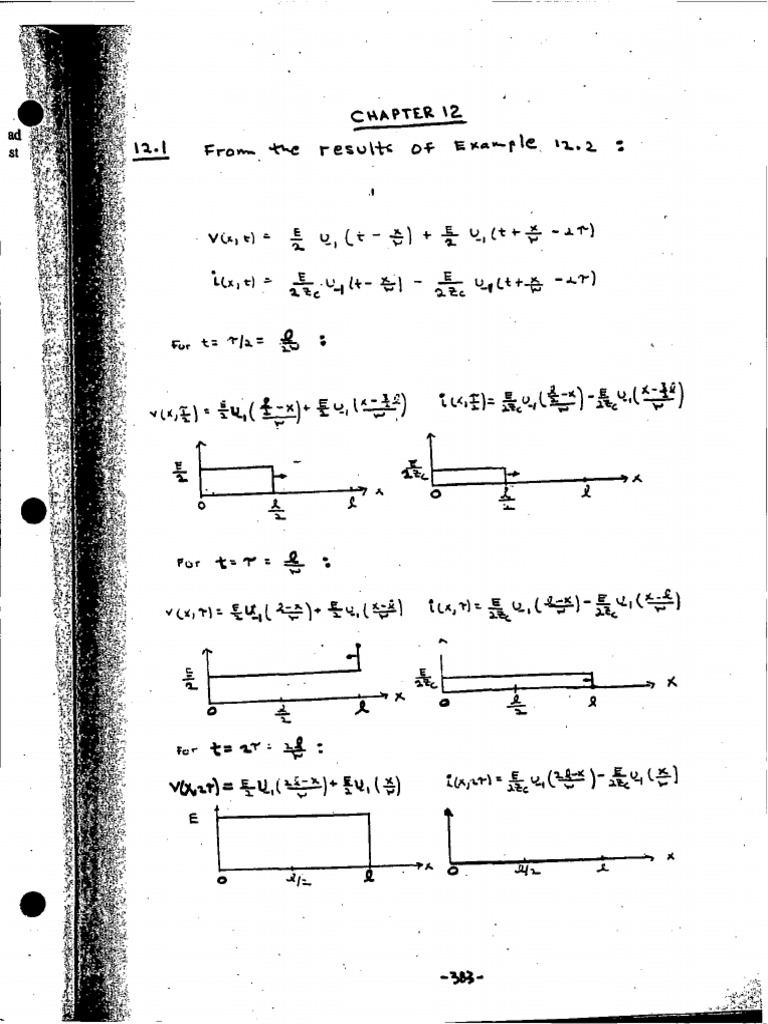 ad
st
CHAPTER 12
12.1 From the results of Example 12.2 :
v(x,t) = E/2 u₋₁(t - x/v) + E/2 u₋₁(t + x/v - 2τ)
i(x,t) = E/2Zc u₋₁(t - x/v) - E/2Zc u₋₁(t + x/v - 2τ)
For t = τ/2 = l/2v :
v(x,τ/2) = E/2 u₋₁((l/2 - x)/v) + E/2 u₋₁((x - 3/2 l)/v) i(x,τ/2) = E/2Zc u₋₁((l/2 - x)/v) - E/2Zc u₋₁((x - 3/2 l)/v)
E/2 0 l/2 l x E/2Zc 0 l/2 l x
For t = τ = l/v :
v(x,τ) = E/2 u₋₁((l-x)/v) + E/2 u₋₁((x-l)/v) i(x,τ) = E/2Zc u₋₁((l-x)/v) - E/2Zc u₋₁((x-l)/v)
E/2 0 l/2 l x E/2Zc 0 l/2 l x
For t = 2τ = 2l/v :
v(x,2τ) = E/2 u₋₁((2l-x)/v) + E/2 u₋₁(x/v) i(x,2τ) = E/2Zc u₋₁((2l-x)/v) - E/2Zc u₋₁(x/v)
E 0 l/2 l x 0 l/2 l x
-383-